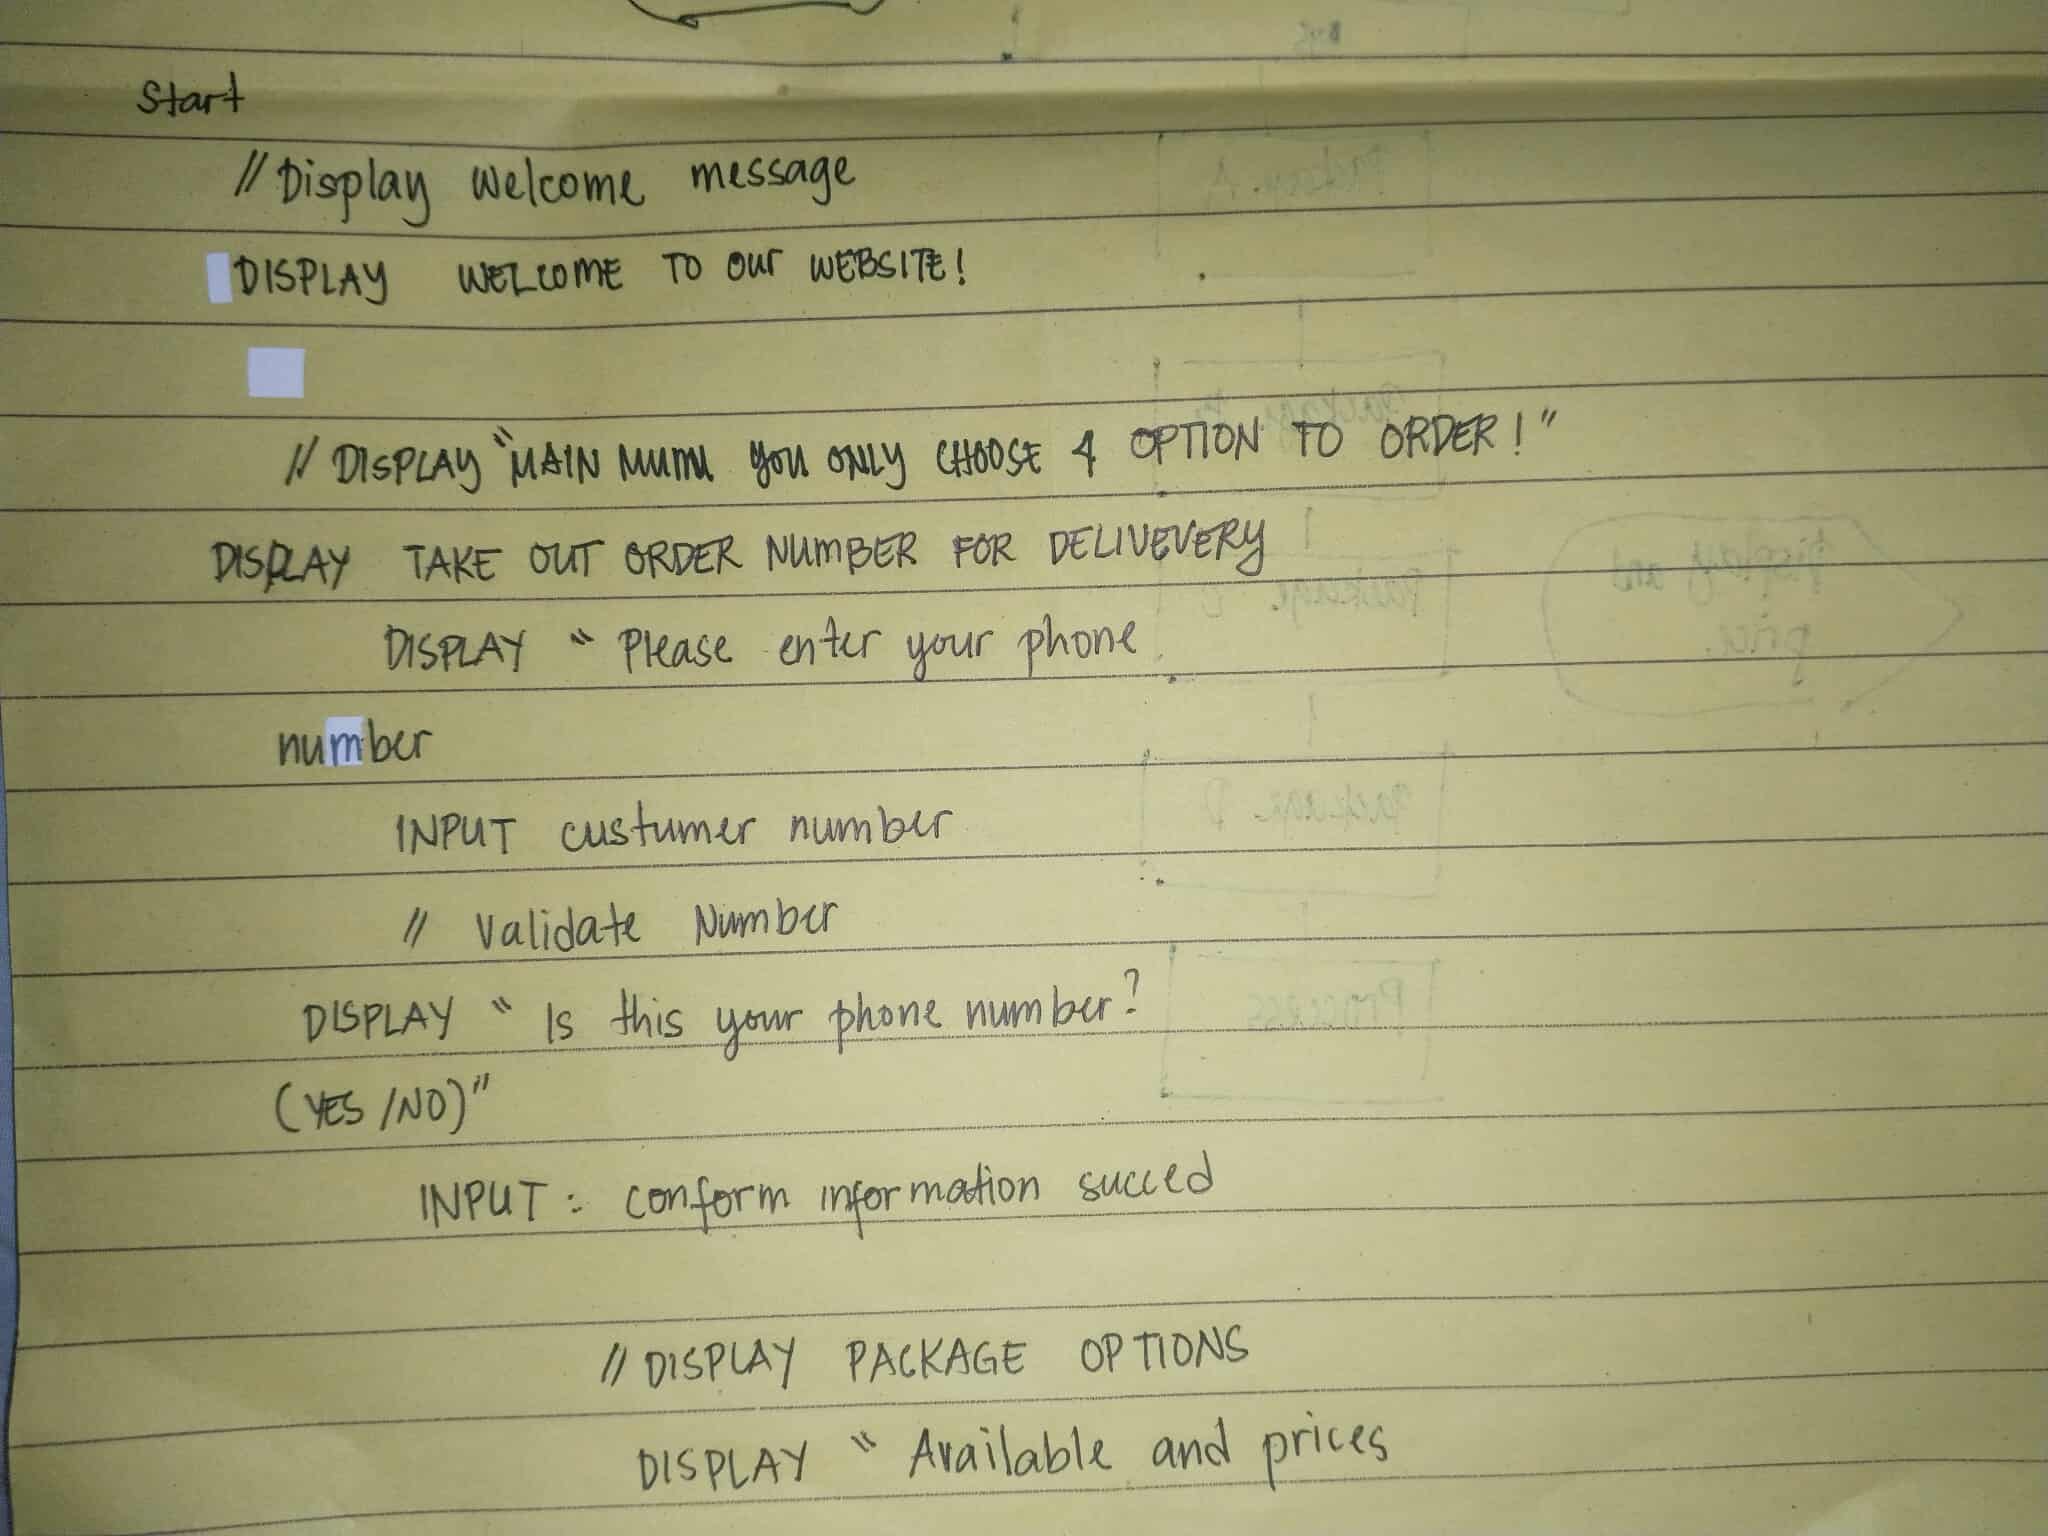 Start
// Display Welcome message
DISPLAY WELCOME TO OUr WEBSITE!
// DISPLAY "MAIN MUMU YOU ONLY CHOOSE 4 OPTION TO ORDER!"
DISPLAY TAKE OUT ORDER NUMBER FOR DELIVEVERY
DISPLAY " Please enter your phone
number
INPUT custumer number
// Validate Number
DISPLAY " Is this your phone number?
(YES/NO)"
INPUT : conform information succed
// DISPLAY PACKAGE OPTIONS
DISPLAY " Available and prices